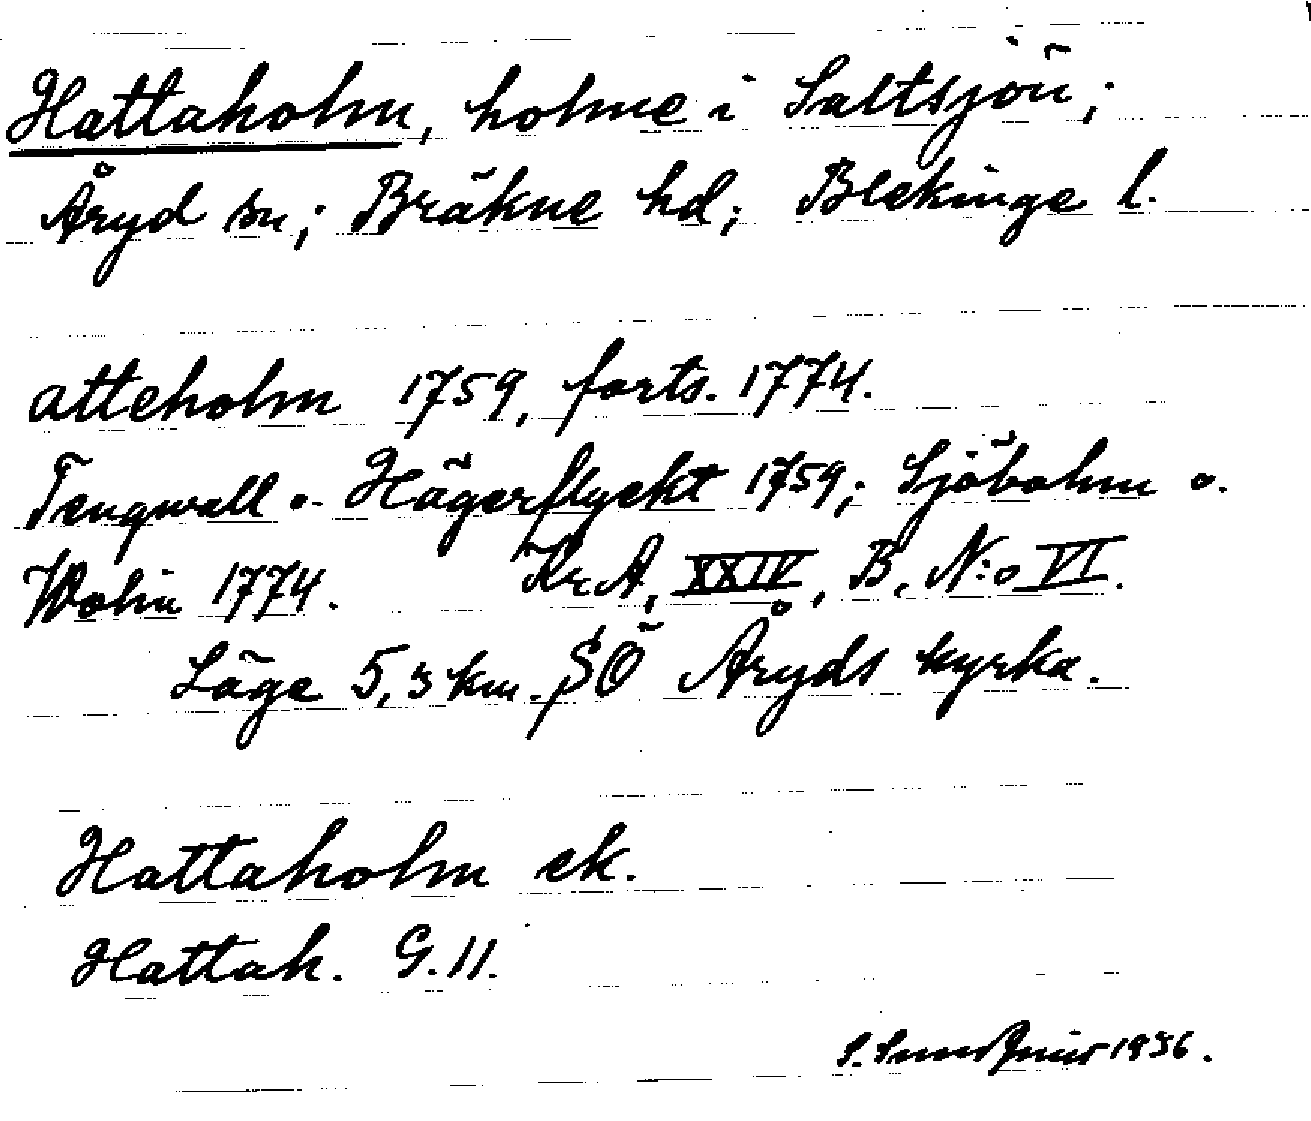 Hattaholm, holme i Saltsjön;
Åryd sn; Bräkne hd; Blekinge l.
atteholm 1759, forts. 1774.
Tengwall o. Hägerflyckt 1759; Sjöbohm o.
Wohin 1774. KrA, XXIV, B, N:o VI.
Läge 5,3 km. SÖ Åryds kyrka.
Hattaholm ek.
Hattah. G. 11.
S. 1936.